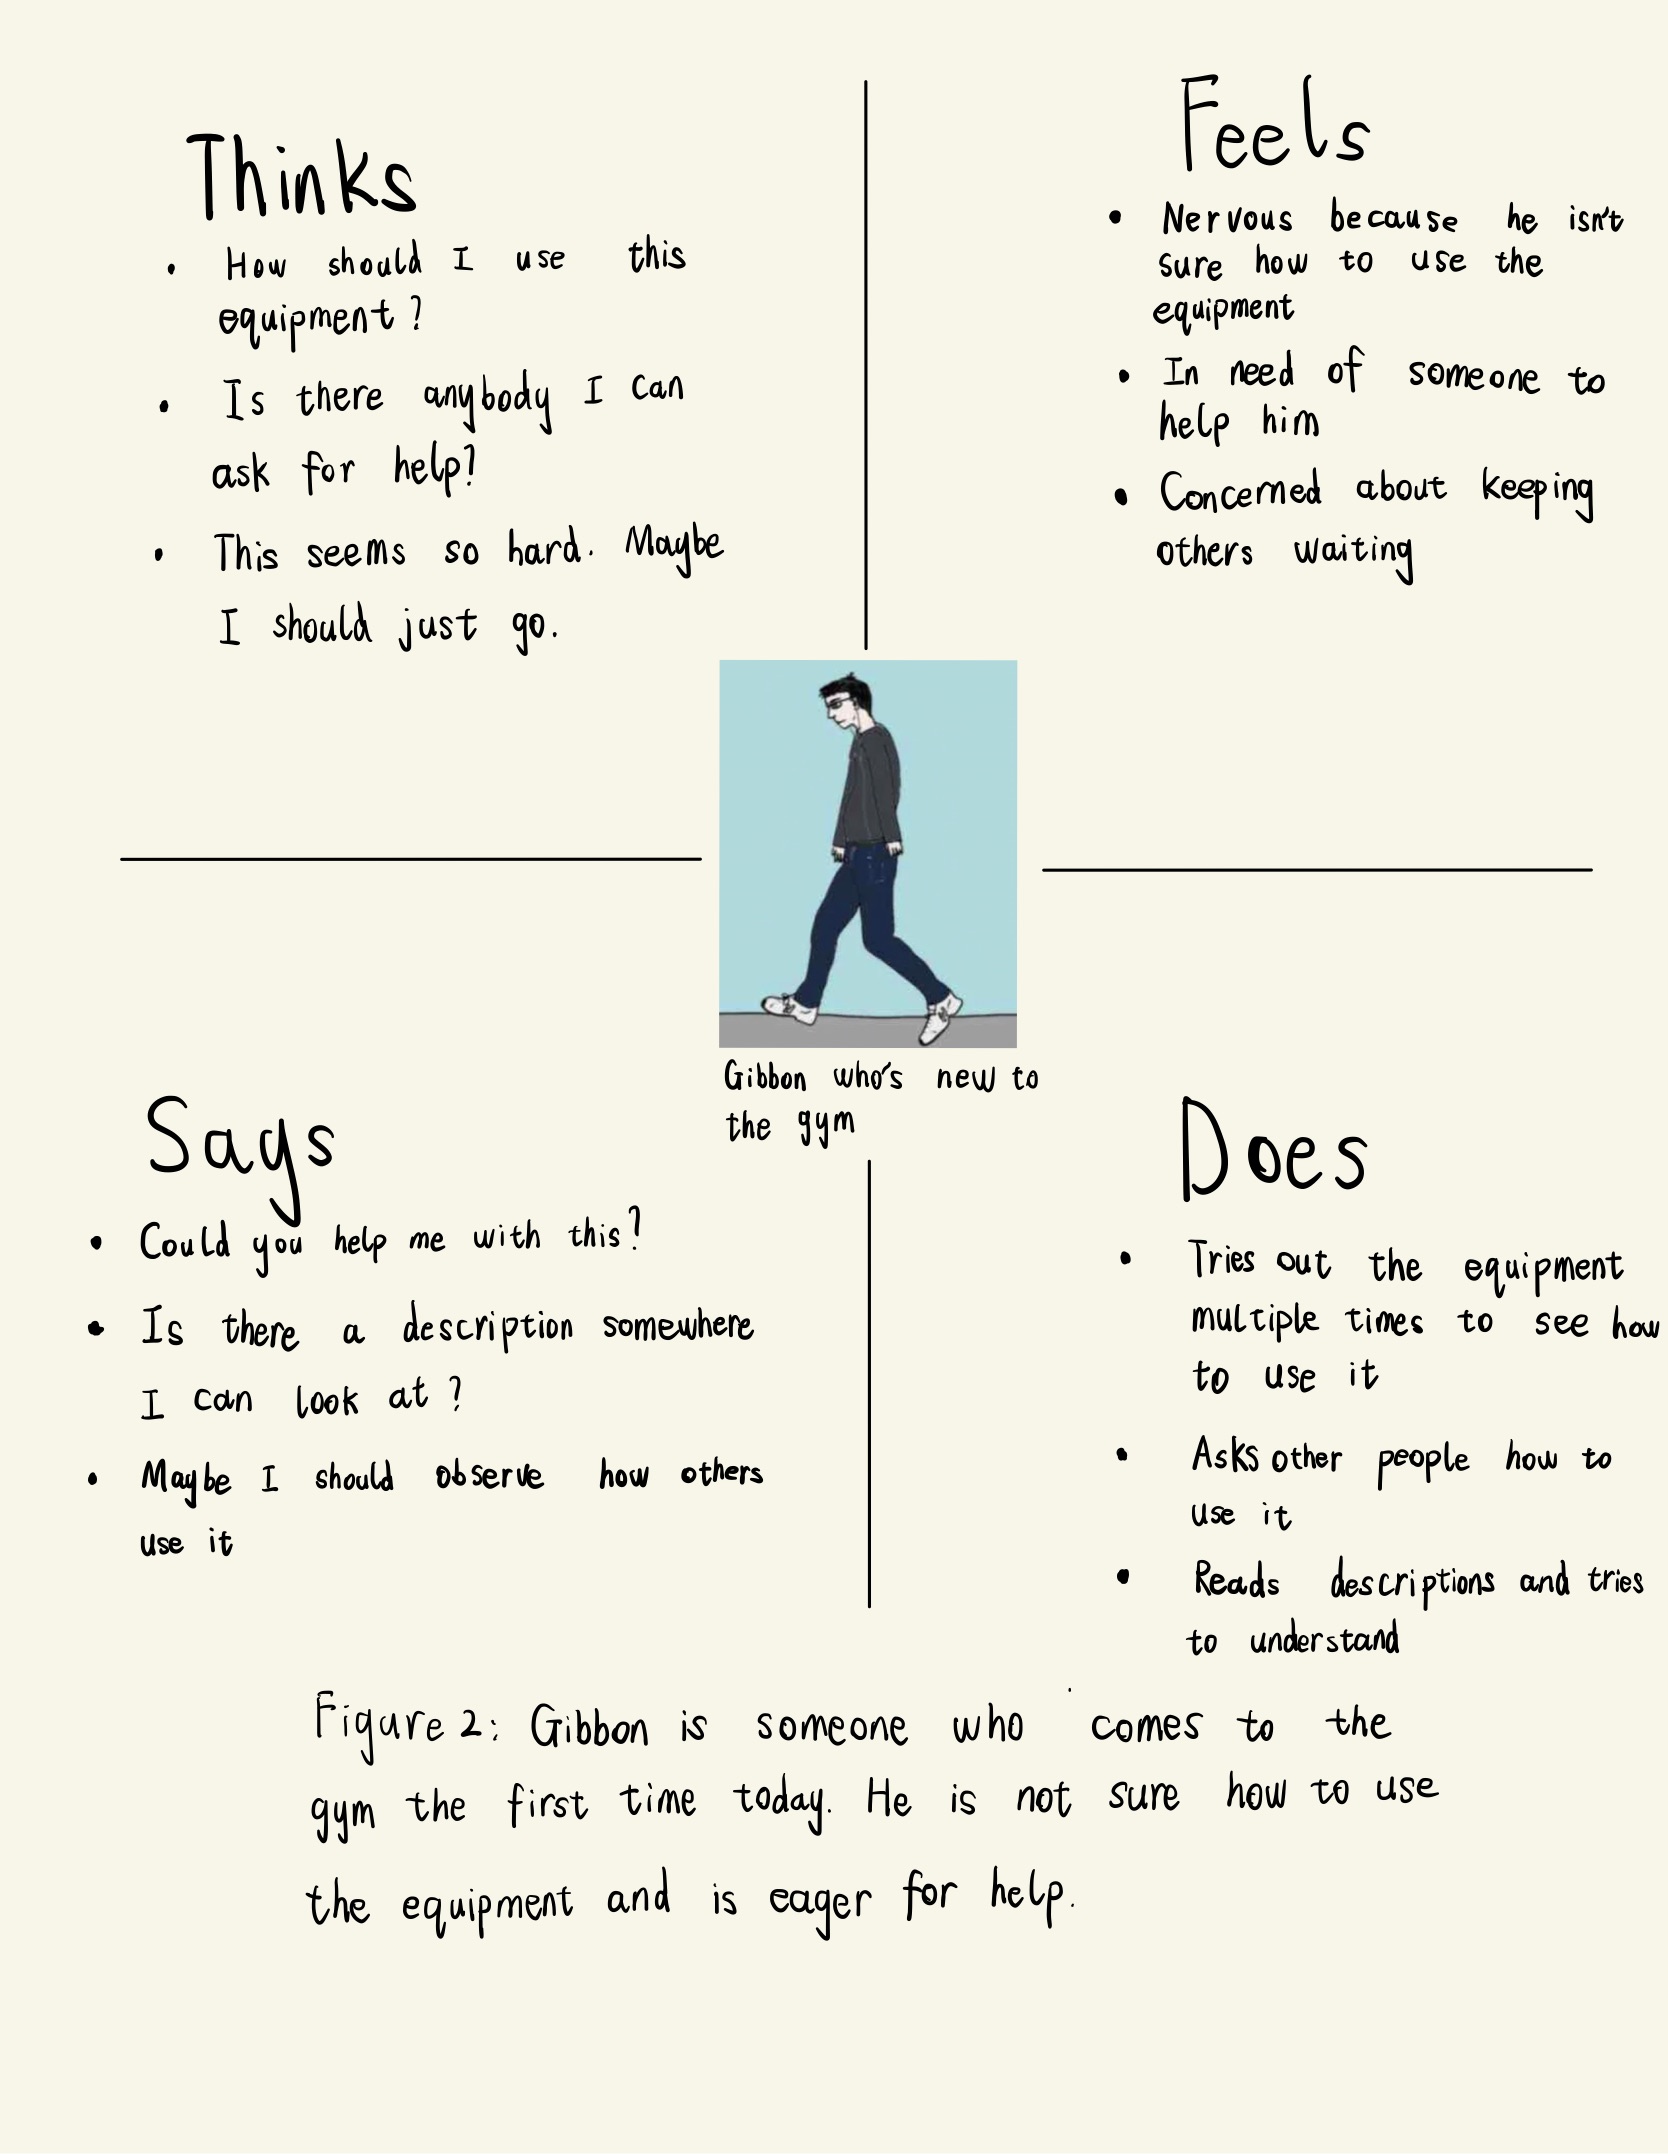 Thinks
• How should I use this
equipment?
• Is there anybody I can
ask for help?
• This seems so hard. Maybe
I should just go.
Feels
• Nervous because he isn't
sure how to use the
equipment
• In need of someone to
help him
• Concerned about keeping
others waiting
Gibbon who's new to
the gym
Says
• Could you help me with this?
• Is there a description somewhere
I can look at?
• Maybe I should observe how others
use it
Does
• Tries out the equipment
multiple times to see how
to use it
• Asks other people how to
use it
• Reads descriptions and tries
to understand
Figure 2: Gibbon is someone who comes to the
gym the first time today. He is not sure how to use
the equipment and is eager for help.